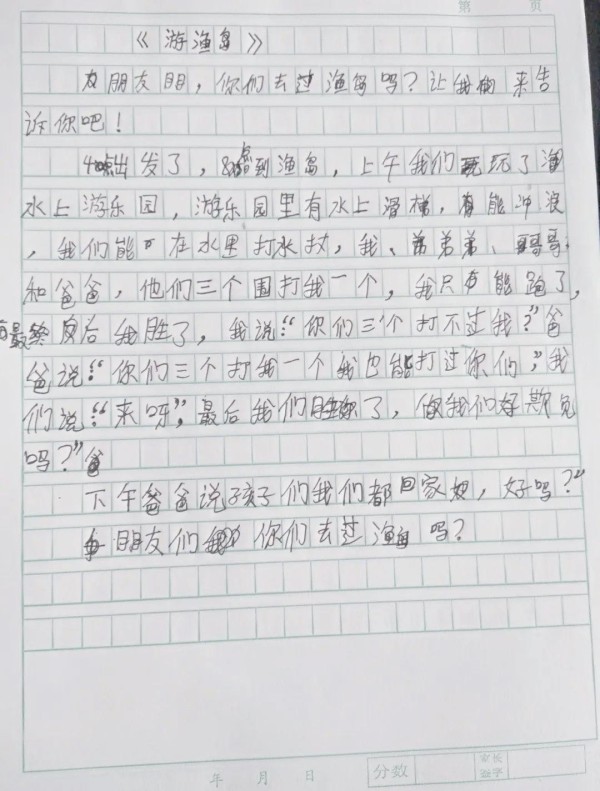 第 页
《游渔岛》
朋友, 你们去过渔岛吗? 让我来告
诉你吧!
4点出发了, 8点到渔岛, 上午我们玩了
水上游乐园, 游乐园里有水上滑梯, 有能冲浪
, 我们能 在水里打水仗, 我、弟弟、哥哥
和爸爸, 他们三个围打我一个, 我只有能跑了,
最后我胜了, 我说:“你们三个打不过我?”爸
爸说:“你们三个打我一个我也能打过你们”, 我
们说:“来呀”, 最后我们胜了, 我们好欺负
吗?”
下午爸爸说孩子们我们都回家, 好吗?”
朋友们 你们去过渔岛吗?
年 月 日 分数 家长
签字